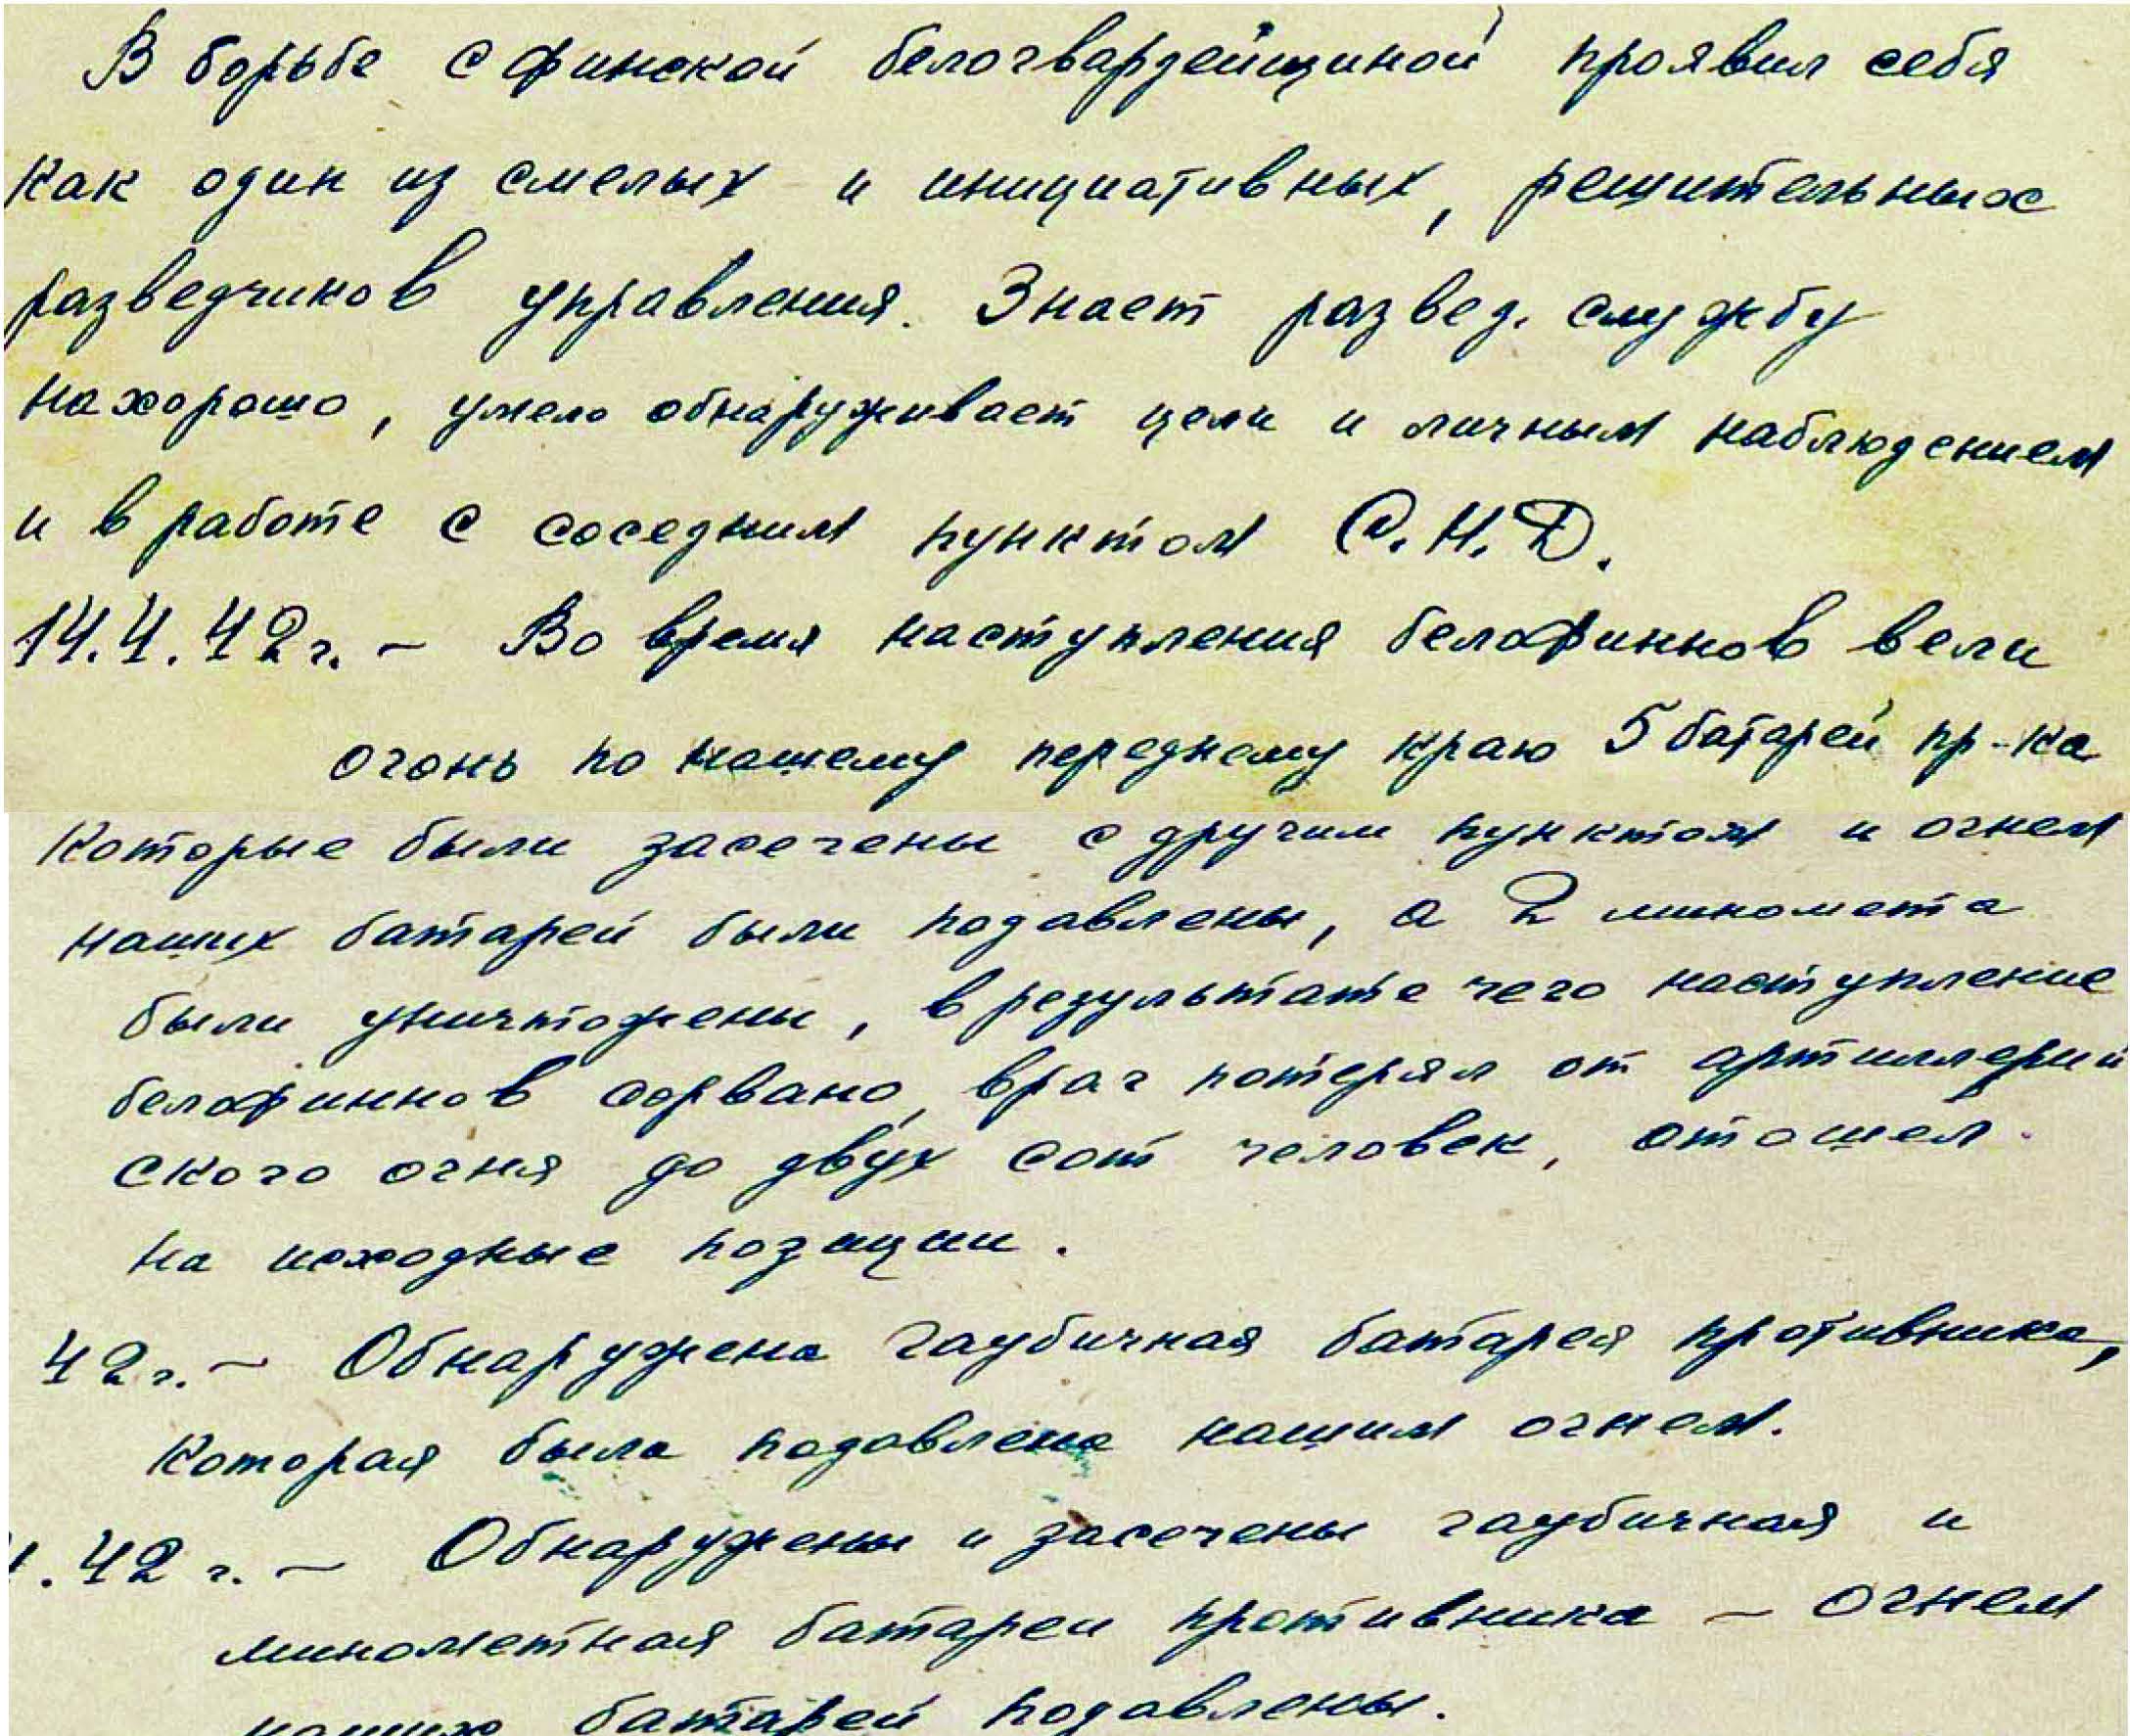 В борьбе с финской белогвардейщиной проявил себя
как один из смелых и инициативных, решительных
разведчиков управления. Знает развед. службу
на хорошо, умело обнаруживает цели и личным наблюдением
и в работе с соседним пунктом С.Н.Д.
14.4.42г. – Во время наступления белофиннов вели
огонь по нашему переднему краю 5 батарей пр-ка
которые были засечены с другим пунктом и огнем
наших батарей были подавлены, а 2 миномета
были уничтожены, в результате чего наступление
белофиннов сорвано, враг потерял от артиллерий
ского огня до двух сот человек, отошел
на исходные позиции.
42г. – Обнаружена гаубичная батарея противника,
которая была подавлена нашим огнем.
.42 г. – Обнаружены и засечены гаубичная и
минометная батареи противника – огнем
наших батарей подавлены.